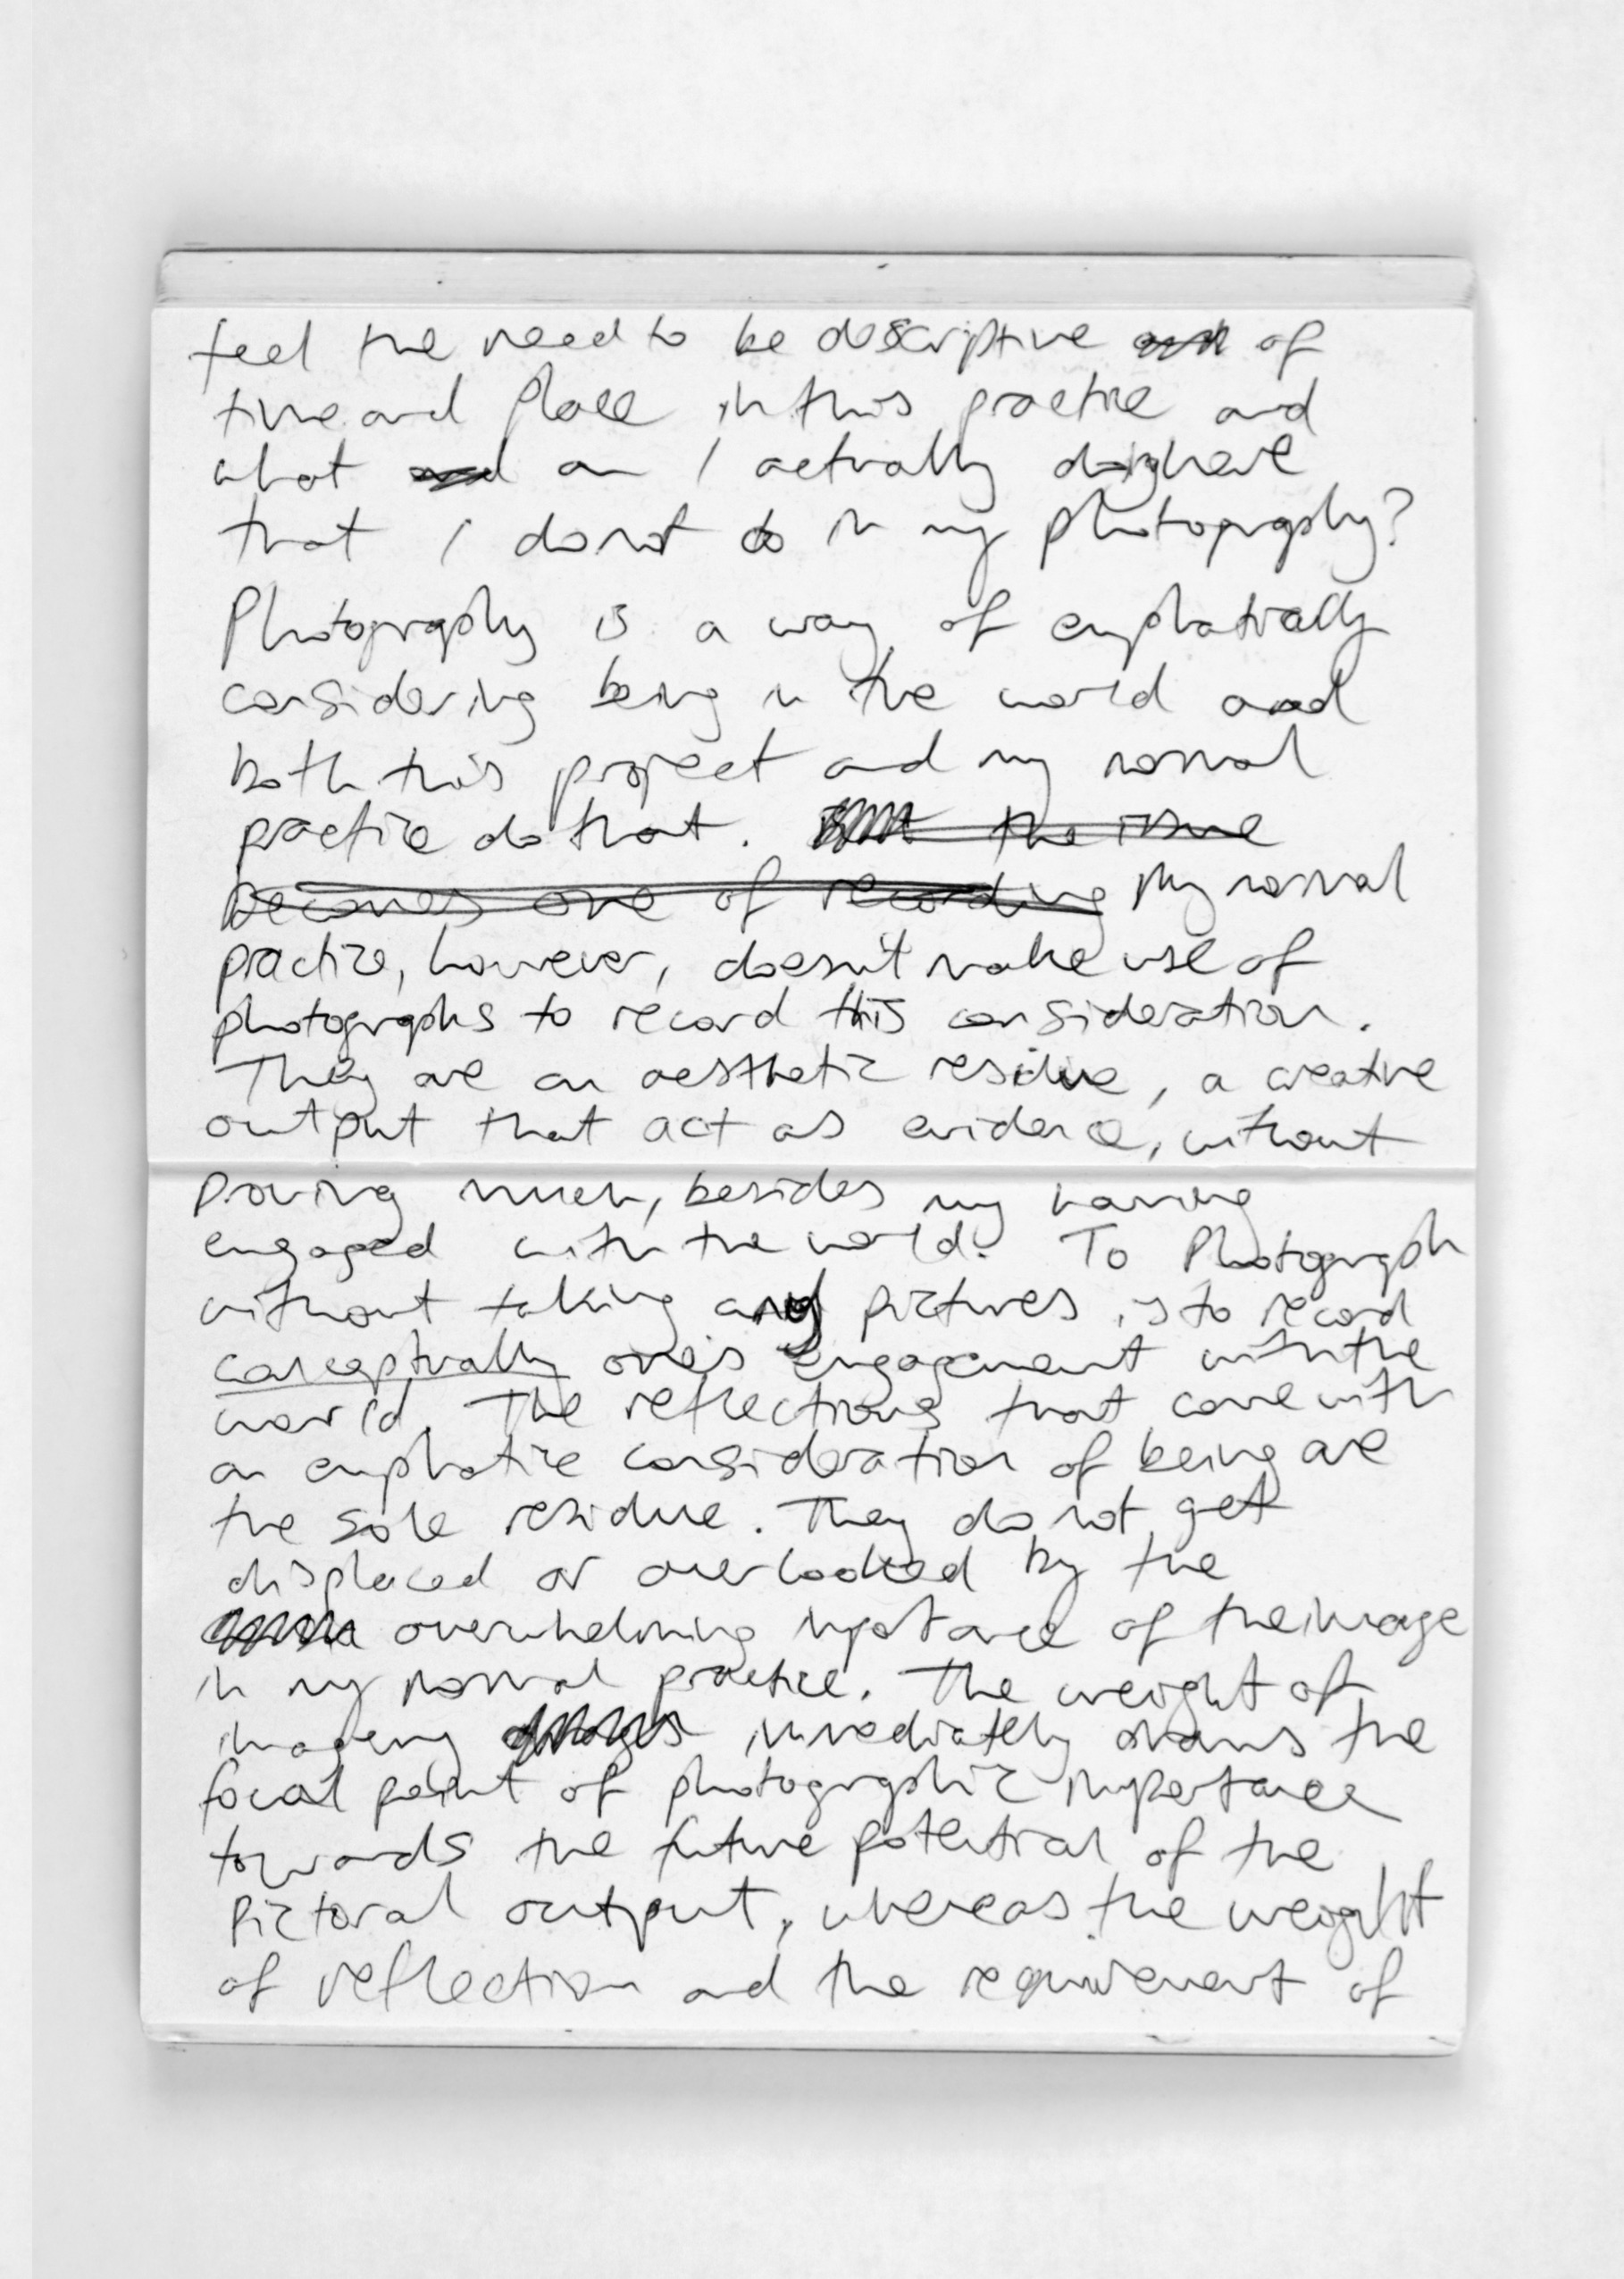 feel the need to be descriptive of
time and place in this practice and
what am I actually doing here
that I do not do in my photography?
Photography is a way of emphatically
considering being in the world and
both this project and my normal
practice do that. But the issue
becomes one of recording My normal
practice, however, doesn't make use of
photographs to record this consideration.
They are an aesthetic residue, a creative
output that act as evidence, without
proving much, besides my having
engaged with the world. To Photograph
without taking any pictures is to record
conceptually one's engagement with the
world. The reflections that come with
an emphatic consideration of being are
the sole residue. They do not get
displaced or overlooked by the
overwhelming importance of the image
in my normal practice. The weight of
imagery immediately draws the
focal point of photographic importance
towards the future potential of the
pictoral output, whereas the weight
of reflection and the requirement of